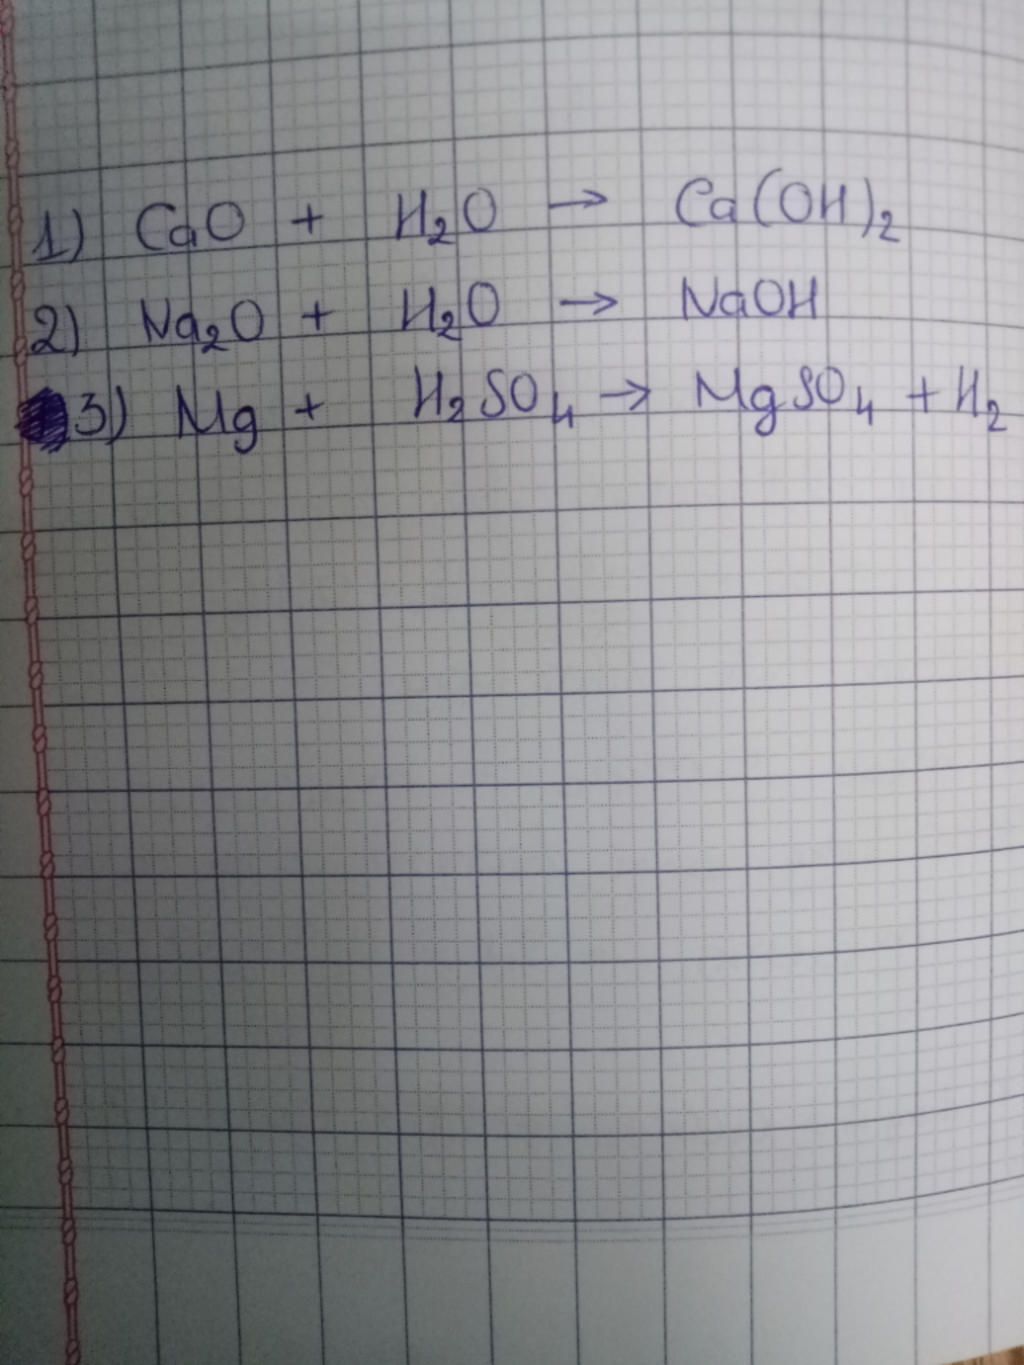 1) CaO + H₂O → Ca(OH)₂
2) Na₂O + H₂O → NaOH
3) Mg + H₂SO₄ → MgSO₄ + H₂